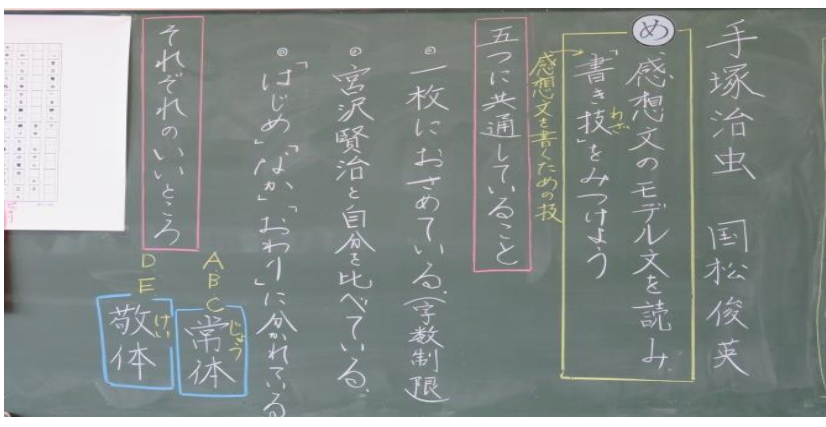 手塚治虫 国松俊英
め
感想文のモデル文を読み
「書き技」をみつけよう
わざ
感想文を書くための技
五つに共通していること
◎一枚におさめている。(字数制限)
◎宮沢賢治と自分を比べている。
◎「はじめ」「なか」「おわり」に分かれている
それぞれのいいところ
ABC
常体
じょう
DE
敬体
けい